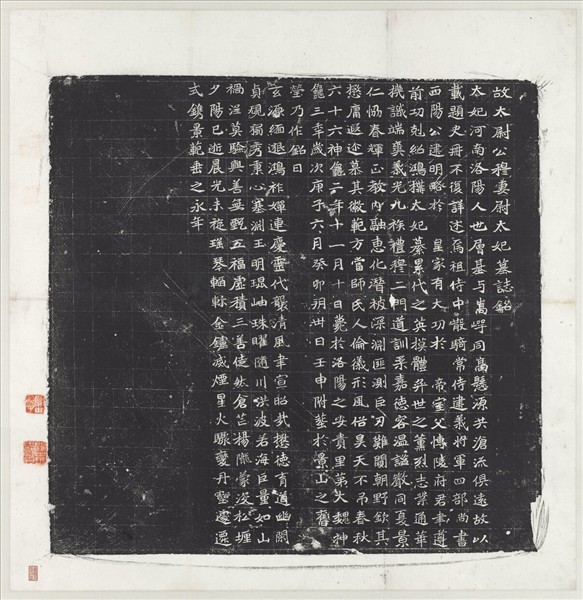 故太尉公穆妻尉太妃墓誌銘
太妃河南洛陽人也層基与嵩崿同高懸源共滄流俱遠故以
載題史冊不復詳述焉祖侍中散騎常侍建義將軍四部尚書
西陽公建明略於 皇家有大功於 帝室父博陵府君聿遵
前功剋紹鴻攜太妃綦累代之英摸體弈世之薰烈志業通華
機識端奧義光九族禮穆二門道訓柔嘉德容温謐徽同夏景
仁協春輝正教內融惠化潛被深淵叵測巨刃難闚朝野欽其
懋庸遐迩慕其徽範方當師氏人倫儀形風俗昊天不弔春秋
六十六神龜二年十一月十日薨於洛陽之安貴里第大魏神
龜三年歲次庚子六月癸卯朔卅日壬申附葬於景山之舊
塋乃作銘曰
玄源緬邈鴻祚嬋連慶靈代襲清風聿宣昭哉懋德育道幽閑
貞規獨秀秉心塞淵玉明琨岫珠曜隨川洪波若海巨量如山
禍淫莫驗與善無甄五福虛積三善徒然倉芒楊隴蒙沒松堰
夕陽已逝晨光未旋瑶琴輟軫金鑪滅煙星火驟變丹壑遽遷
式鐫景範垂之永年